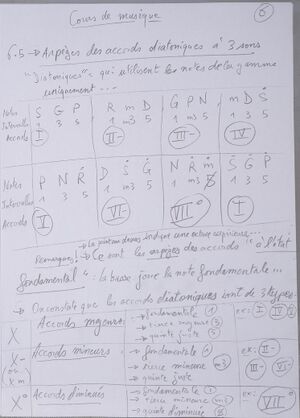 Cours de musique
6
6.5 → Arpèges des accords diatoniques à 3 sons
"Diatoniques" = qui utilisent les notes de la gamme
uniquement...
Notes S G P R m D G P N m D Ṡ
Intervalles 1 3 5 1 m3 5 1 m3 5 1 3 5
Accords I II- III- IV
Notes P N Ṙ D Ṡ Ġ N Ṙ ṁ Ṡ Ġ Ṗ
Intervalles 1 3 5 1 m3 5 1 m3 1 3 5
Accords V VI- VII° I
Remarques: → Le point au dessus indique une octave supérieure...
→ Ce sont les arpèges des accords "à l'état
fondamental": la basse joue la note fondamentale...
→ On constate que les accords diatoniques sont de 3 types:
X Accords majeurs → fondamentale 1 ex: I IV V
→ tierce majeure 3
→ quinte juste 5
X- ou Xm Accords mineurs → fondamentale 1 ex: II-
→ tierce mineure m3 III-
→ quinte juste 5 VI-
X° Accords diminués → fondamentale 1 ex:
→ tierce mineure m3 VII°
→ quinte diminuée